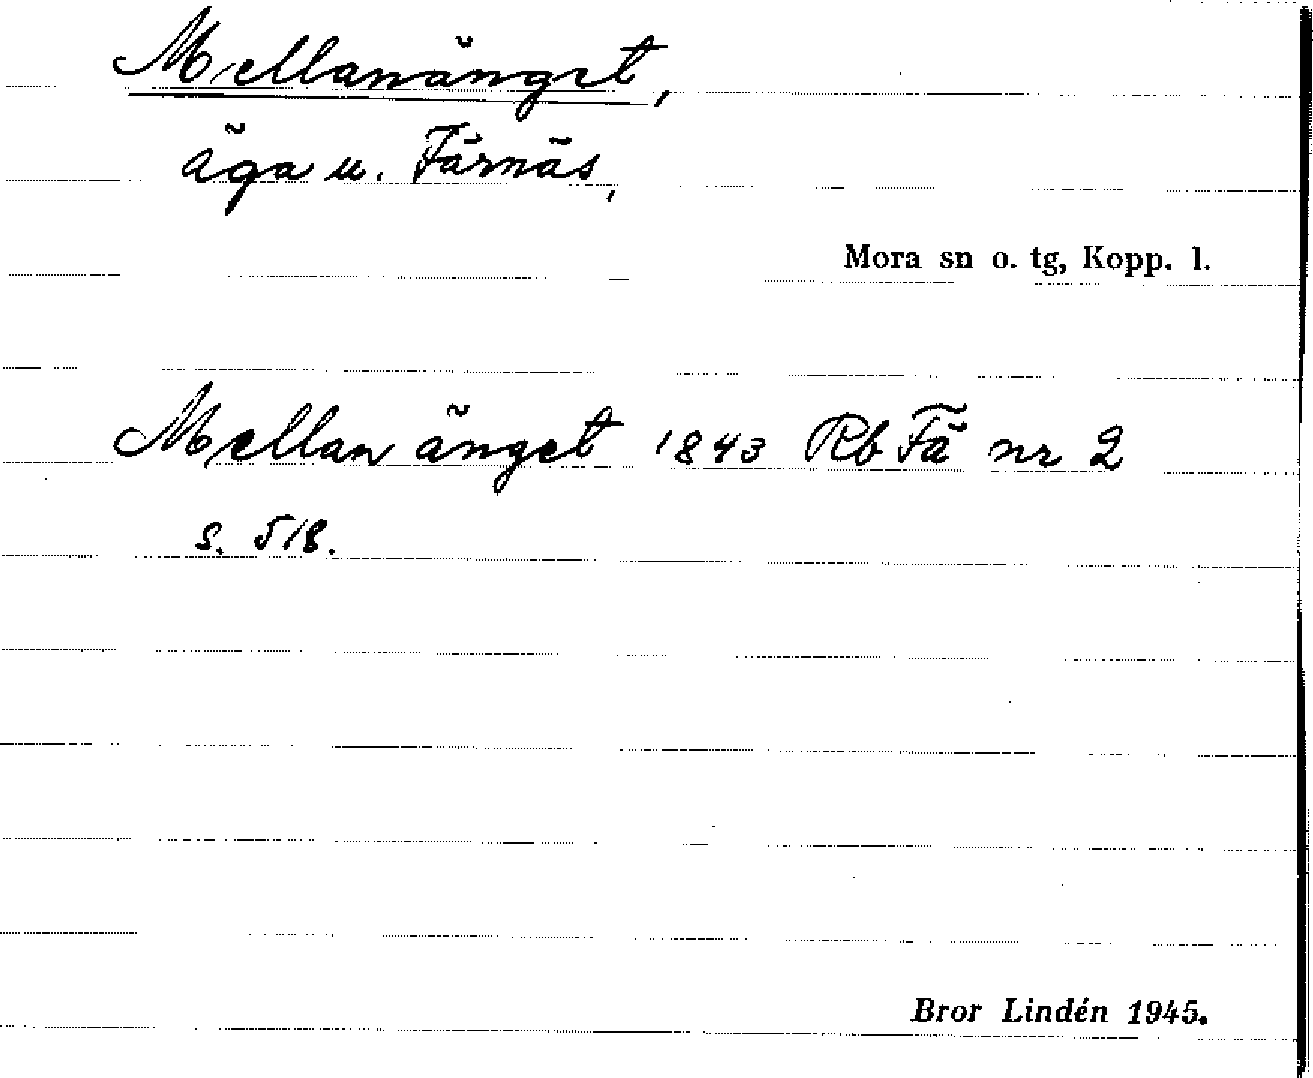 Mellanänget,
äga u. Färnäs,
Mora sn o. tg, Kopp. l.
Mellan änget 1843 Rb Fä nr 2
s. 518.
Bror Lindén 1945.